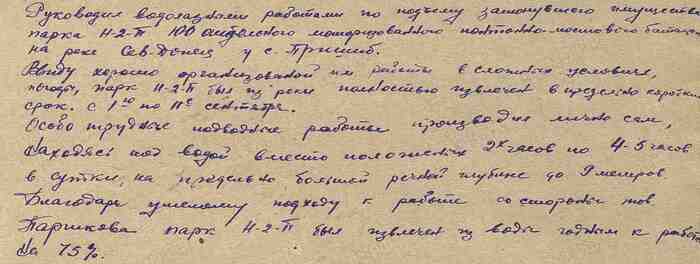 Руководил водолазными работами по подъему затонувшего имущества
парка Н-2-П 100 отдельного моторизованного понтонно-мостового батальон
на реке Сев-Донец у с. Пришиб.
Ввиду хорошо организованой им работы в сложных условиях,
погоды, парк Н-2-П был из реки полностью извлечен в предельно короткий
срок. с 1го по 11е сентября.
Особо трудные подводные работы производил лично сам,
находясь под водой вместо положеных 2х часов по 4-5 часов
в сутки, на предельно большой речной глубине до 9 метров
Благодаря умелому подходу к работе со стороны тов.
Паршкова парк Н-2-П был извлечен из воды годным к работе
на 75%.